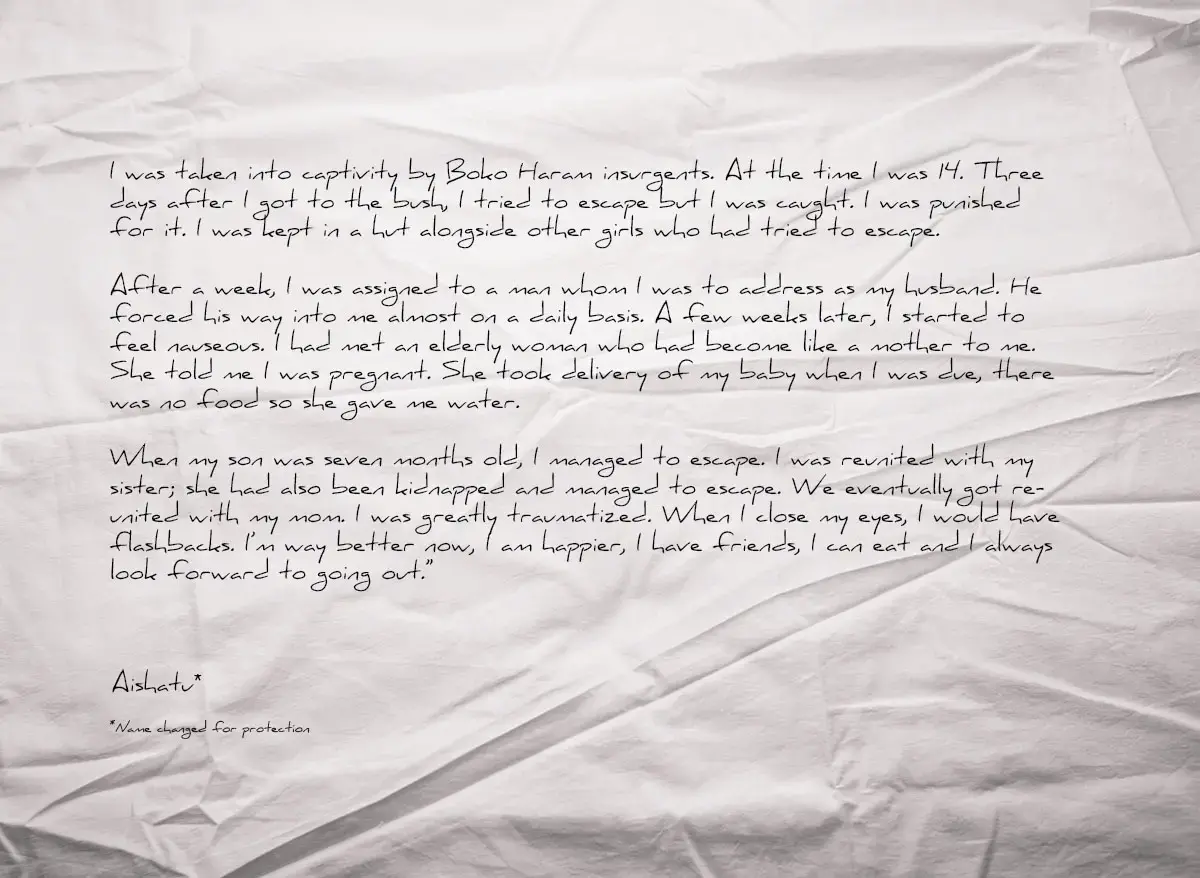 I was taken into captivity by Boko Haram insurgents. At the time I was 14. Three
days after I got to the bush, I tried to escape but I was caught. I was punished
for it. I was kept in a hut alongside other girls who had tried to escape.
After a week, I was assigned to a man whom I was to address as my husband. He
forced his way into me almost on a daily basis. A few weeks later, I started to
feel nauseous. I had met an elderly woman who had become like a mother to me.
She told me I was pregnant. She took delivery of my baby when I was due, there
was no food so she gave me water.
When my son was seven months old, I managed to escape. I was reunited with my
sister; she had also been kidnapped and managed to escape. We eventually got re-
united with my mom. I was greatly traumatized. When I close my eyes, I would have
flashbacks. I'm way better now, I am happier, I have friends, I can eat and I always
look forward to going out."
Aishatu*
*Name changed for protection